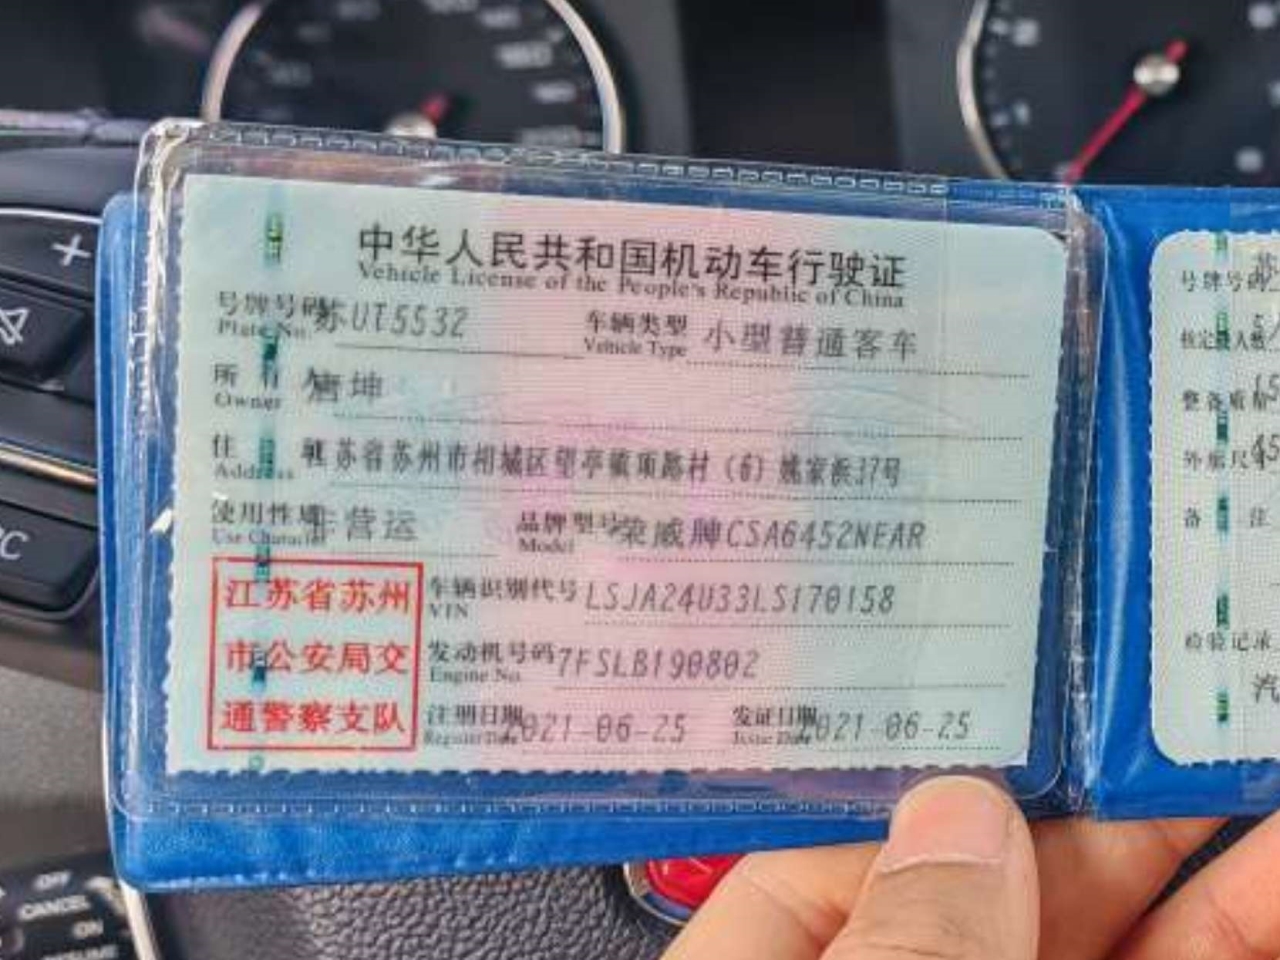 中华人民共和国机动车行驶证
Vehicle License of the People's Republic of China
号牌号码 苏UT5532 车辆类型 小型普通客车
Plate No. Vehicle Type
所有人 唐坤
Owner
住址 江苏省苏州市相城区望亭镇项路村(6)姚家浜37号
Address
使用性质 非营运 品牌型号 荣威牌CSA6452NEAR
Use Character Model
江苏省苏州
市公安局交
通警察支队
车辆识别代号 LSJA24U33LS170158
VIN
发动机号码 7FSLB190802
Engine No.
注册日期 2021-06-25 发证日期 2021-06-25
Register Date Issue Date
号牌号码 苏
核定载人数
整备质量
外廓尺寸
备注
检验记录
汽
OFF
CANCEL
ON